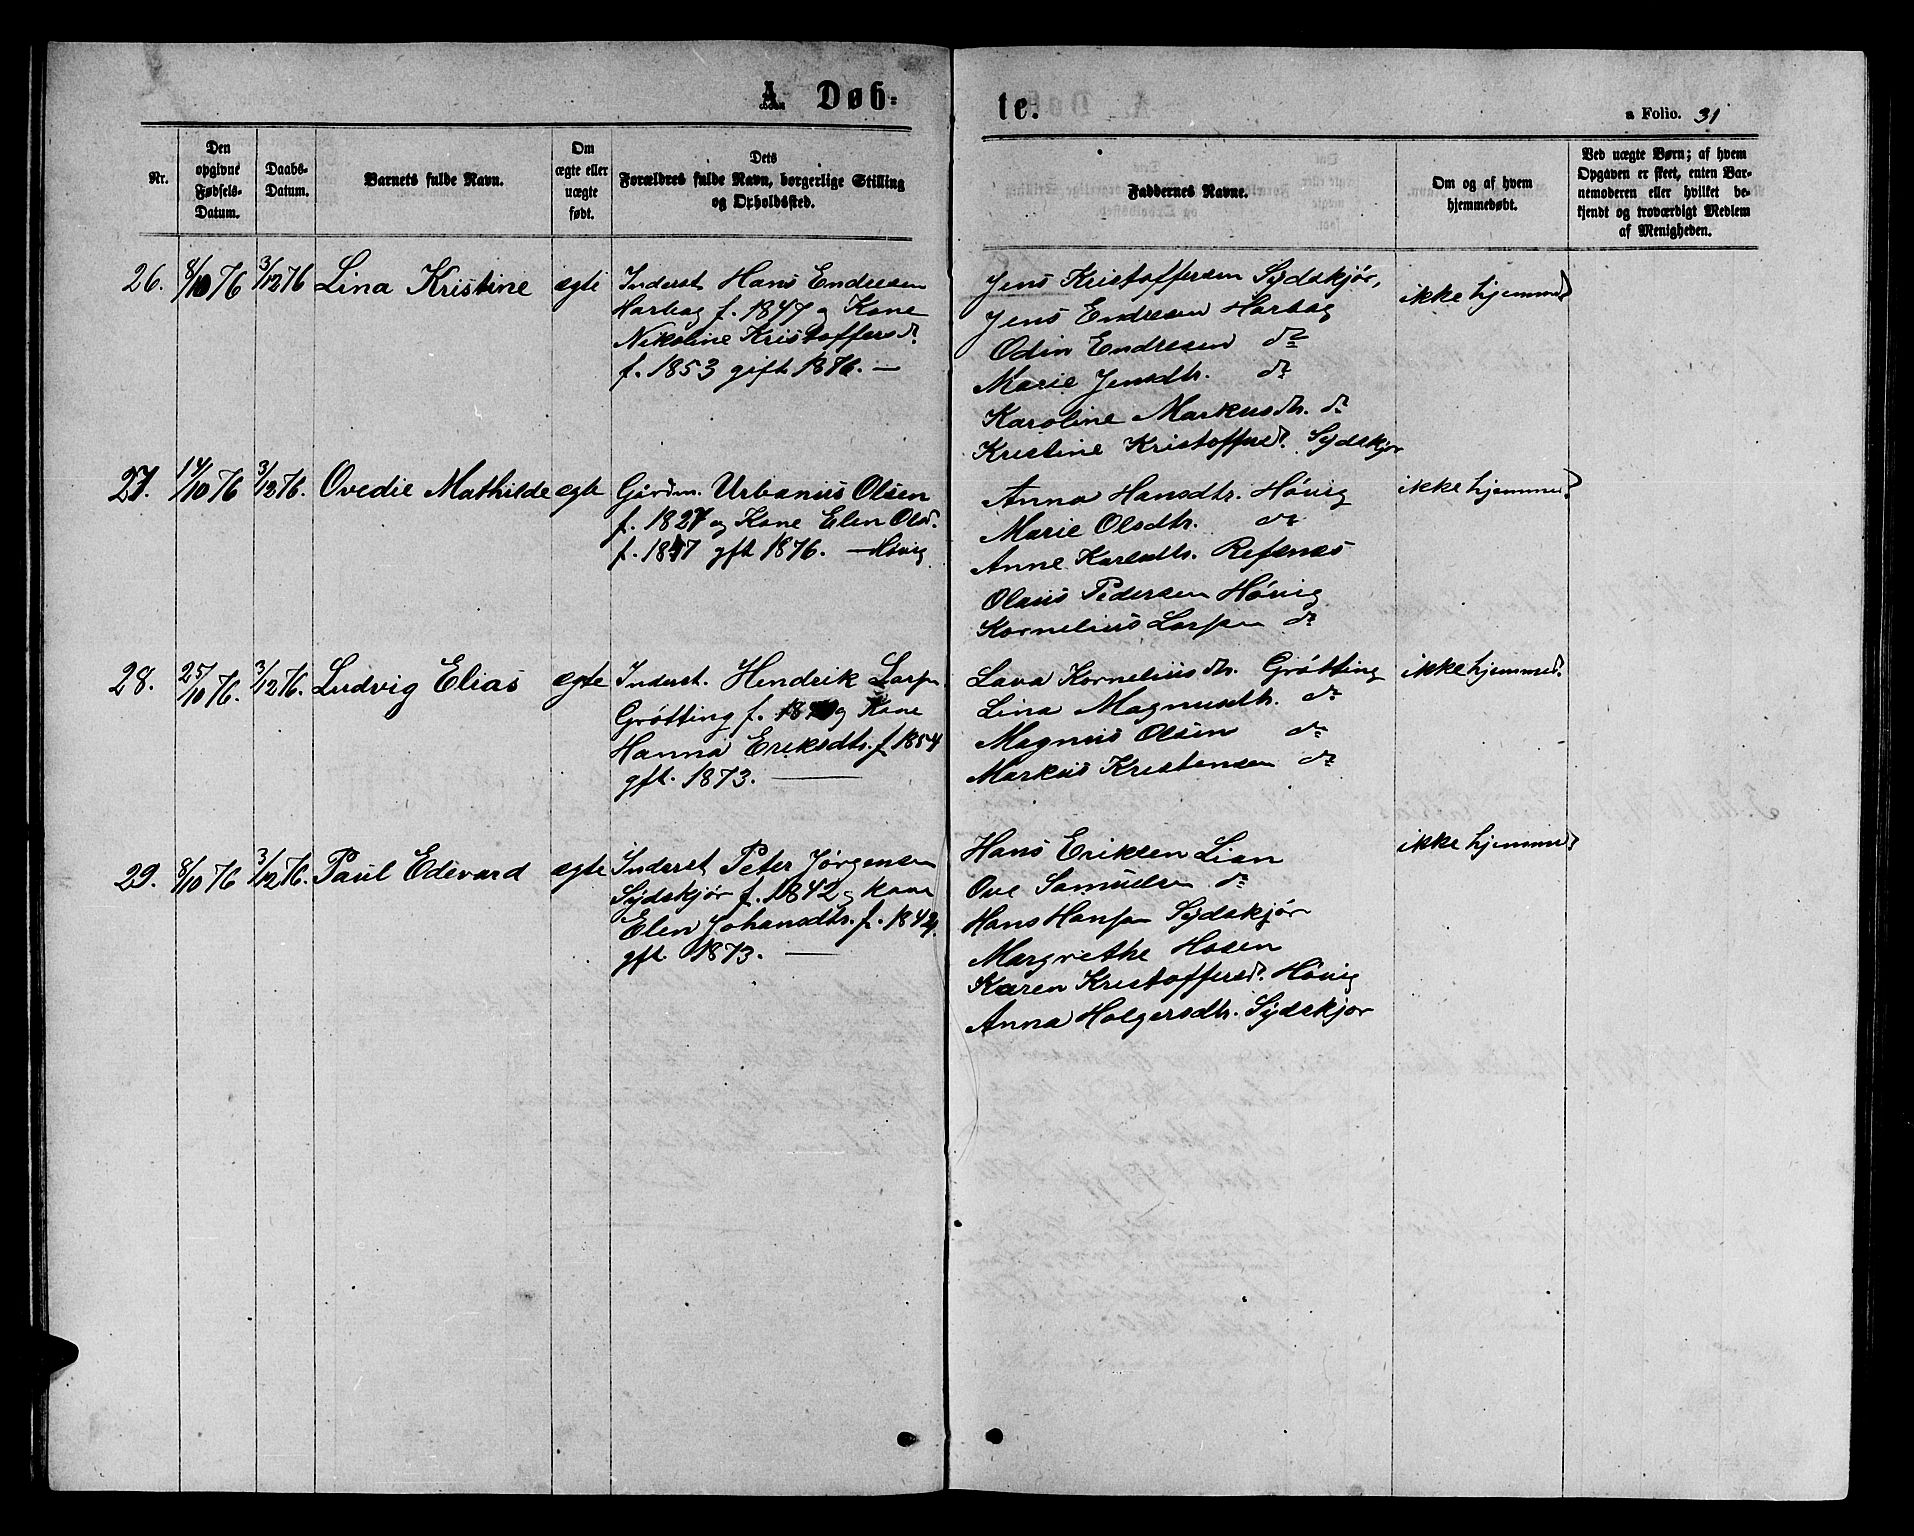 A. Døb-
te.
a Folio. 31
Nr.
Den
opgivne
Fødsels-
Datum.
Daabs-
Datum.
Barnets fulde Navn.
Om
ægte eller
uægte
født.
Dets
Forældres fulde Navn, borgerlige Stilling
og Opholdssted.
Faddernes Navne.
Om og af hvem
hjemmedøbt.
Ved uægte Børn; af hvem
Opgaven er skeet, enten Bar-
nemoderen eller hvilket be-
kjendt og troværdigt Medlem
af Menigheden.
26. 8/10 76 3/12 76 Lina Kristine ægte
Inderst Hans Endresen
Harbag f. 1847 og Kone
Nikoline Kristoffersd.
f. 1853 gift 1876. —
Jens Kristoffersen Sydskjør,
Jens Endresen Harbag
Odin Endresen do
Marie Jensdtr. do
Karoline Markusdtr. do
Kristine Kristoffersd. Sydskjør
ikke hjemmed.
27. 14/10 76 3/12 76. Ovedie Mathilde ægte
Gårdm. Urbanus Olsen
f. 1827 og Kone Elen Olsd.
f. 1847 gft 1876. — Høvig
Anna Hansdtr. Høvig
Marie Olsdtr. do
Anne Karlsdtr. Refsnæs
Olaus Pedersen Høvig
Kornelius Larsen do
ikke hjemmed.
28. 25/10 76. 3/12 76. Ludvig Elias ægte
Inderst. Hendrik Larsen
Grøtting f. og Kone
Hanna Eriksdtr. f. 1854
gft. 1873. —
Lava Korneliusdtr. Grøtting
Lina Magnusdtr. do
Magnus Olsen do
Markus Kristensen do
ikke hjemmed.
29. 8/10 76 3/12 76. Paul Edevard ægte
Inderst Peter Jørgensen
Sydskjør f. 1842 og Kone
Elen Johansdtr. f. 1842.
gft 1873. —
Hans Eriksen Lian
Ove Samuelsen do
Hans Hansen Sydskjør
Margrethe Hosen
Karen Kristoffersd. Høvig
Anna Holgersdtr. Sydskjør
ikke hjemmed.